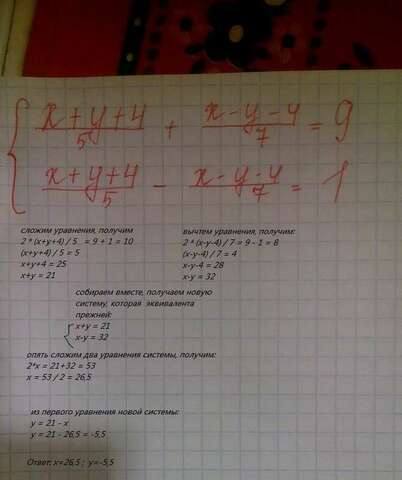 (x+y+4)/5 + (x-y-4)/7 = 9
(x+y+4)/5 - (x-y-4)/7 = 1
сложим уравнения, получим
2 * (x+y+4) / 5 = 9 + 1 = 10
(x+y+4) / 5 = 5
x+y+4 = 25
x+y = 21
вычтем уравнения, получим:
2 * (x-y-4) / 7 = 9 - 1 = 8
(x-y-4) / 7 = 4
x-y-4 = 28
x-y = 32
собираем вместе, получаем новую
систему, которая эквивалента
прежней:
x+y = 21
x-y = 32
опять сложим два уравнения системы, получим:
2*x = 21+32 = 53
x = 53 / 2 = 26,5
из первого уравнения новой системы:
y = 21 - x
y = 21 - 26,5 = -5,5
Ответ: x=26,5 ; y=-5,5